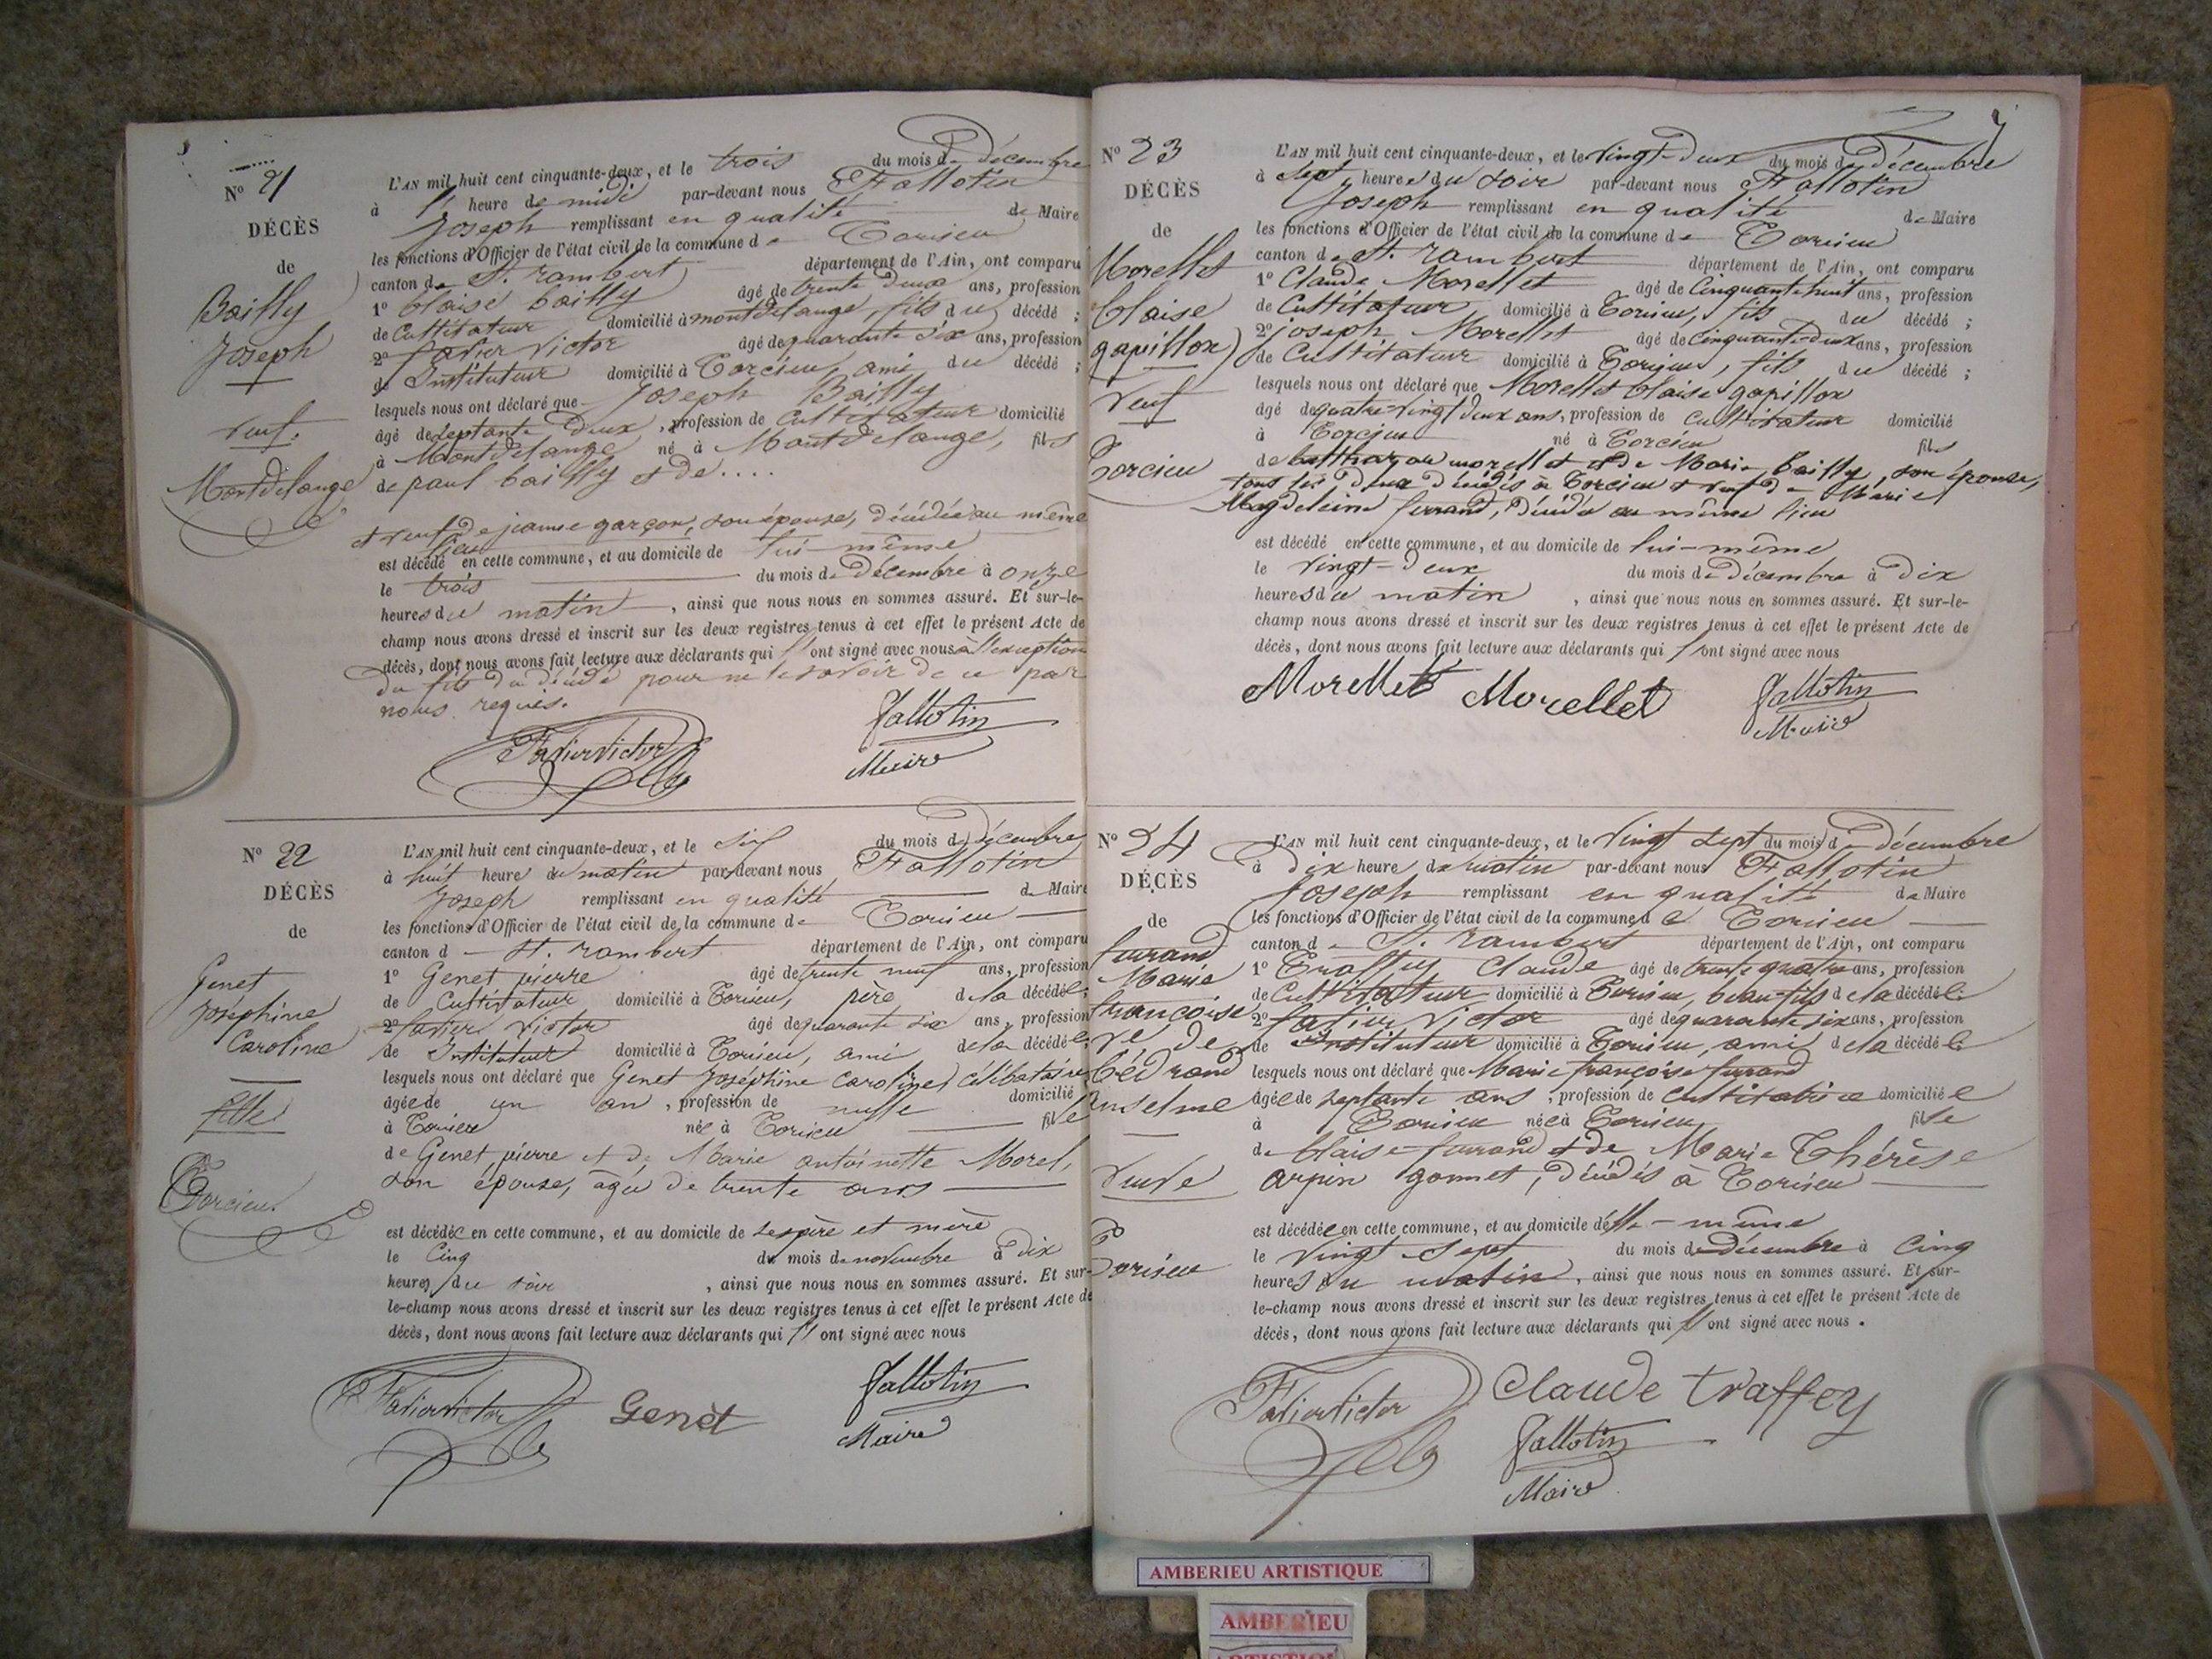 N° 21
DÉCÈS
de
Bailly
Joseph
veuf.
Montdelange
L'AN mil huit cent cinquante-deux, et le trois du mois de décembre
à 1 heure de midi par-devant nous Fallotin
Joseph remplissant en qualité de Maire
les fonctions d'Officier de l'état civil de la commune de Torcieu
canton de St. rambert département de l'Ain, ont comparu
1° blaise bailly âgé de trente deux ans, profession
de Cultivateur domicilié à montdelange, fils du décédé ;
2° favier Victor âgé de quarante six ans, profession
d' Instituteur domicilié à Torcieu, ami du décédé ;
lesquels nous ont déclaré que Joseph Bailly
âgé de septante deux, profession de Cultivateur domicilié
à Montdelange né à Montdelange, fils
de paul bailly et de ....
et veuf de jeanne garçon, son épouse, décédée au même
lieu
est décédé en cette commune, et au domicile de lui-même
le trois du mois de décembre à onze
heures du matin, ainsi que nous nous en sommes assuré. Et sur-le-
champ nous avons dressé et inscrit sur les deux registres tenus à cet effet le présent Acte de
décès, dont nous avons fait lecture aux déclarants qui ont signé avec nous à l'exception
du fils du décédé pour ne le savoir de ce par
nous requis.
Favier Victor Fallotin
Maire
N° 22
DÉCÈS
de
Genet
Joséphine
Caroline
fille
Torcieu
L'AN mil huit cent cinquante-deux, et le six du mois de décembre
à huit heure du matin par-devant nous Fallotin
Joseph remplissant en qualité de Maire
les fonctions d'Officier de l'état civil de la commune de Torcieu
canton d St. rambert département de l'Ain, ont comparu
1° Genet pierre âgé de trente neuf ans, profession
de Cultivateur domicilié à Torcieu, père de la décédée;
2° favier Victor âgé de quarante six ans, profession
de Instituteur domicilié à Torcieu, ami de la décédée;
lesquels nous ont déclaré que Genet Joséphine Caroline, célibataire
âgée de un an, profession de nulle domicilié
à Torcieu née à Torcieu fille
de Genet pierre et de Marie antoinette Morel,
son épouse, âgée de trente ans
est décédée en cette commune, et au domicile de ses père et mère
le Cinq du mois de novembre à dix
heures du soir, ainsi que nous nous en sommes assuré. Et sur-
le-champ nous avons dressé et inscrit sur les deux registres tenus à cet effet le présent Acte de
décès, dont nous avons fait lecture aux déclarants qui ont signé avec nous
Favier Victor Genèt Fallotin
Maire
7
N° 23
DÉCÈS
de
Morellet
blaise
gapillon)
veuf
Torcieu
L'AN mil huit cent cinquante-deux, et le vingt-deux du mois de décembre
à sept heures du soir par-devant nous Fallotin
Joseph remplissant en qualité de Maire
les fonctions d'Officier de l'état civil de la commune de Torcieu
canton de St. rambert département de l'Ain, ont comparu
1° Claude Morellet âgé de Cinquante huit ans, profession
de Cultivateur domicilié à Torcieu, fils du décédé ;
2° joseph Morellet âgé de cinquante-deux ans, profession
de Cultivateur domicilié à Torcieu, fils du décédé ;
lesquels nous ont déclaré que Morellet blaise gapillon
âgé de quatre vingt deux ans, profession de cultivateur domicilié
à Torcieu né à Torcieu fils
de balthazar morellet et de Marie bailly, son épouse,
tous les deux décédés à Torcieu et veuf de Marie
Magdeleine ferrand, décédée au même lieu
est décédé en cette commune, et au domicile de lui-même
le vingt-deux du mois de décembre à dix
heures du matin, ainsi que nous nous en sommes assuré. Et sur-le-
champ nous avons dressé et inscrit sur les deux registres tenus à cet effet le présent Acte de
décès, dont nous avons fait lecture aux déclarants qui ont signé avec nous
Morellet Morellet Fallotin
Maire
N° 24
DÉCÈS
de
ferrand
Marie
françoise
ve de
bédrand
anselme
veuve
Torcieu
L'AN mil huit cent cinquante-deux, et le vingt sept du mois de décembre
à dix heure du matin par-devant nous Fallotin
Joseph remplissant en qualité de Maire
les fonctions d'Officier de l'état civil de la commune de Torcieu
canton de St. rambert département de l'Ain, ont comparu
1° Traffey Claude âgé de trente quatre ans, profession
de Cultivateur domicilié à Torcieu, beau-fils de la décédée
2° favier Victor âgé de quarante six ans, profession
de Instituteur domicilié à Torcieu, ami de la décédée
lesquels nous ont déclaré que Marie françoise ferrand
âgée de septante ans, profession de Cultivatrice domiciliée
à Torcieu née à Torcieu fille
de blaise ferrand et de Marie Thérèse
arpin gonnet, décédés à Torcieu
est décédée en cette commune, et au domicile d'elle-même
le vingt sept du mois de décembre à Cinq
heures du matin, ainsi que nous nous en sommes assuré. Et sur-
le-champ nous avons dressé et inscrit sur les deux registres tenus à cet effet le présent Acte de
décès, dont nous avons fait lecture aux déclarants qui ont signé avec nous.
Favier Victor Claude traffey
Fallotin
Maire
AMBERIEU ARTISTIQUE
AMBERIEU
ARTISTIQUE